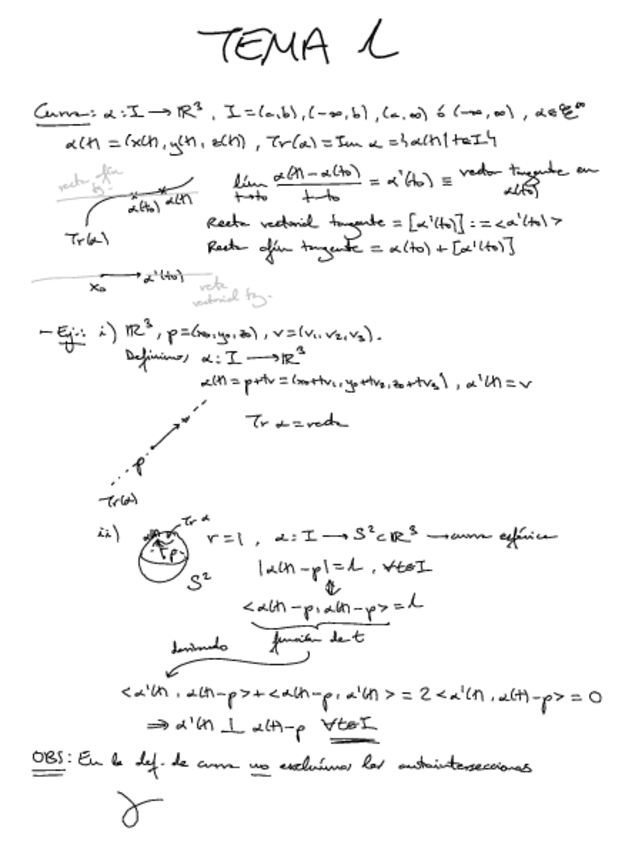 TEMA 1
Curva: α: I → ℝ³, I=(a,b), (-∞,b), (a,∞) ó (-∞,∞), α∈𝒞^∞
α(t) = (x(t), y(t), z(t)), Tr(α) = Im α = {α(t) | t∈I}
recta afín tg.
α(t₀) α(t)
Tr(α)
lím_{t→t₀} (α(t) - α(t₀))/(t - t₀) = α'(t₀) ≡ vector tangente en α(t₀)
Recta vectorial tangente = [α'(t₀)] := <α'(t₀)>
Recta afín tangente = α(t₀) + [α'(t₀)]
x₀ α'(t₀)
recta vectorial tg.
- Ej.: i) ℝ³, p=(x₀,y₀,z₀), v=(v₁,v₂,v₃).
Definimos α: I → ℝ³
α(t) = p+tv = (x₀+tv₁, y₀+tv₂, z₀+tv₃), α'(t) = v
Tr α = recta
p
Tr(α)
ii) Tr α
r p
S²
r=1, α: I → S² ⊂ ℝ³ → curva esférica
|α(t) - p| = 1, ∀t∈I
⇕
<α(t) - p, α(t) - p> = 1
función de t
derivando
<α'(t), α(t)-p> + <α(t)-p, α'(t)> = 2<α'(t), α(t)-p> = 0
⇒ α'(t) ⊥ α(t)-p ∀t∈I
OBS: En la def. de curva no excluimos las autointersecciones